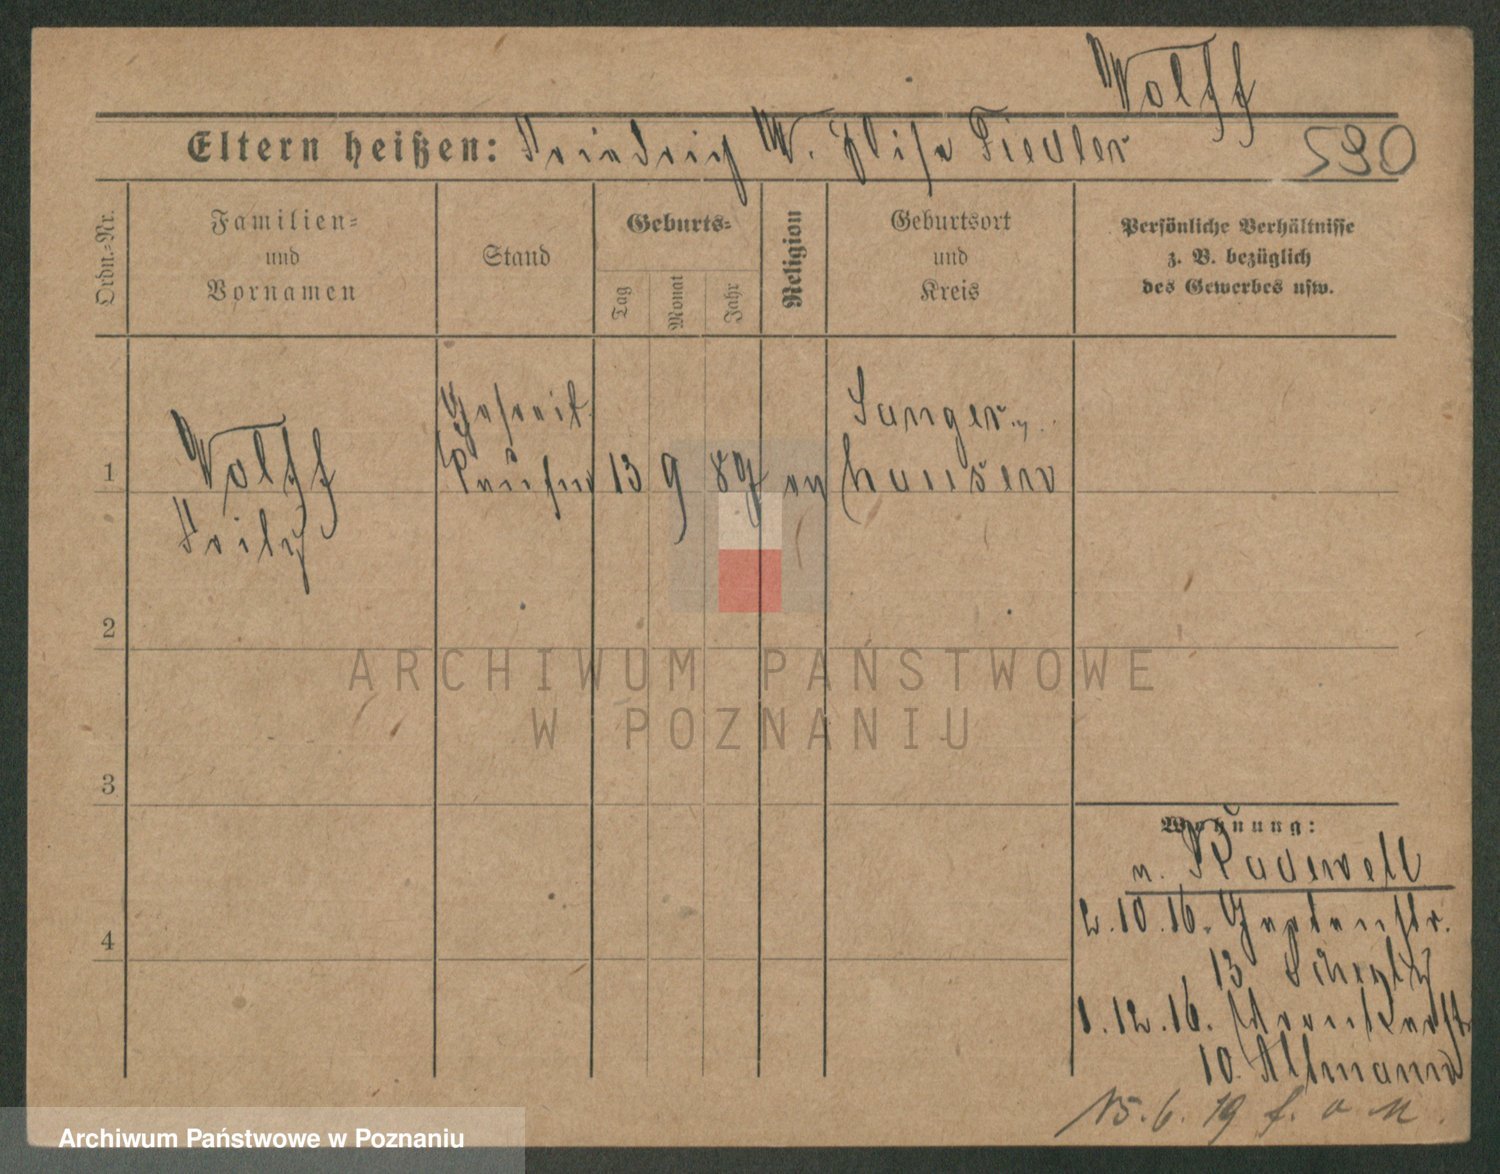 Wolff
Eltern heißen: Friedrich W. Elise Fiedler
590
Ordn.-Nr.
Familien-
und
Vornamen
Stand
Geburts-
Tag
Monat
Jahr
Religion
Geburtsort
und
Kreis
Persönliche Verhältnisse
z. B. bezüglich
des Gewerbes usw.
1
Wolff
Fritz
13 9 89 ev
Sanger-
hausen
2
ARCHIWUM PAŃSTWOWE
W POZNANIU
3
Wohnung:
n. Radewell
2.10.16. Gartenstr.
13
1.12.16.
10. Altmann
15.6.19
4
Archiwum Państwowe w Poznaniu